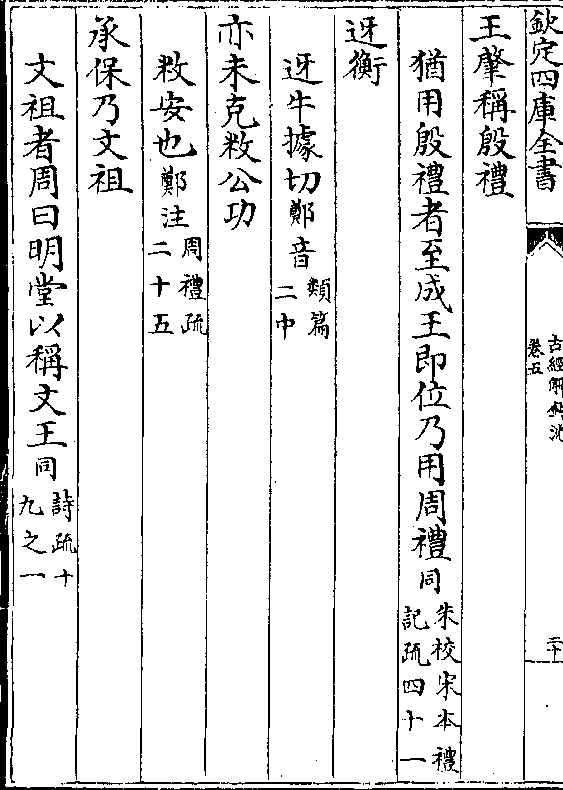 欽定四庫全書
古經解鉤沈
卷五
二十
王肇稱殷禮
猶用殷禮者至成王即位乃用周禮同朱校宋本禮記疏四十一
迓衡
迓牛據切鄭音類篇二中
亦未克敉公功
敉安也鄭注周禮疏二十五
承保乃文祖
文祖者周曰明堂以稱文王同詩疏十九之一